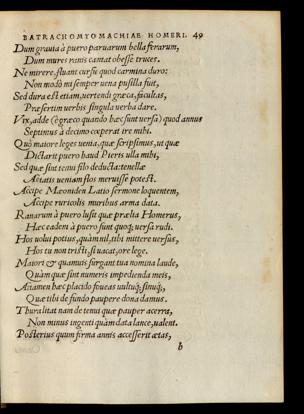 BATRACHOMYOMACHIAE HOMERI. 49
Dum grauia à puero paruarum bella ferarum,
Dum mures ranis cantat obesse truces.
Ne mirere, fluant cursu quod carmina duro:
Non modò mi semper uena pusilla fuit,
Sed dura est etiam, uertendi græca, facultas,
Præsertim uerbis singula uerba dare.
Vix, adde (è græco quando hæc sunt uersa) quod annus
Septimus à decimo cœperat ire mihi.
Quò maiore leges uenia, quæ scripsimus, ut quæ
Dictarit puero haud Pieris ulla mihi,
Sed quæ sint tenui filo deducta: tenellæ
Aetatis ueniam flos meruisse potest.
Accipe Mæoniden Latio sermone loquentem,
Accipe ruricolis muribus arma data.
Ranarum à puero lusit quæ prælia Homerus,
Hæc eadem à puero sunt quoq; uersa rudi.
Hos uolui potius, quàm nil, tibi mittere uersus,
Hos tu non tristi, si uacat, ore lege.
Maiori & quamuis surgant tua nomina laude,
Quàm quæ sint numeris impedienda meis,
Attamen hæc placido foueas uultuq́; sinuq́;,
Quæ tibi de fundo paupere dona damus.
Thura litat nam de tenui quæ pauper acerra,
Non minus ingenti quàm data lance, ualent.
Posterius quum firma annis accesserit ætas,
b